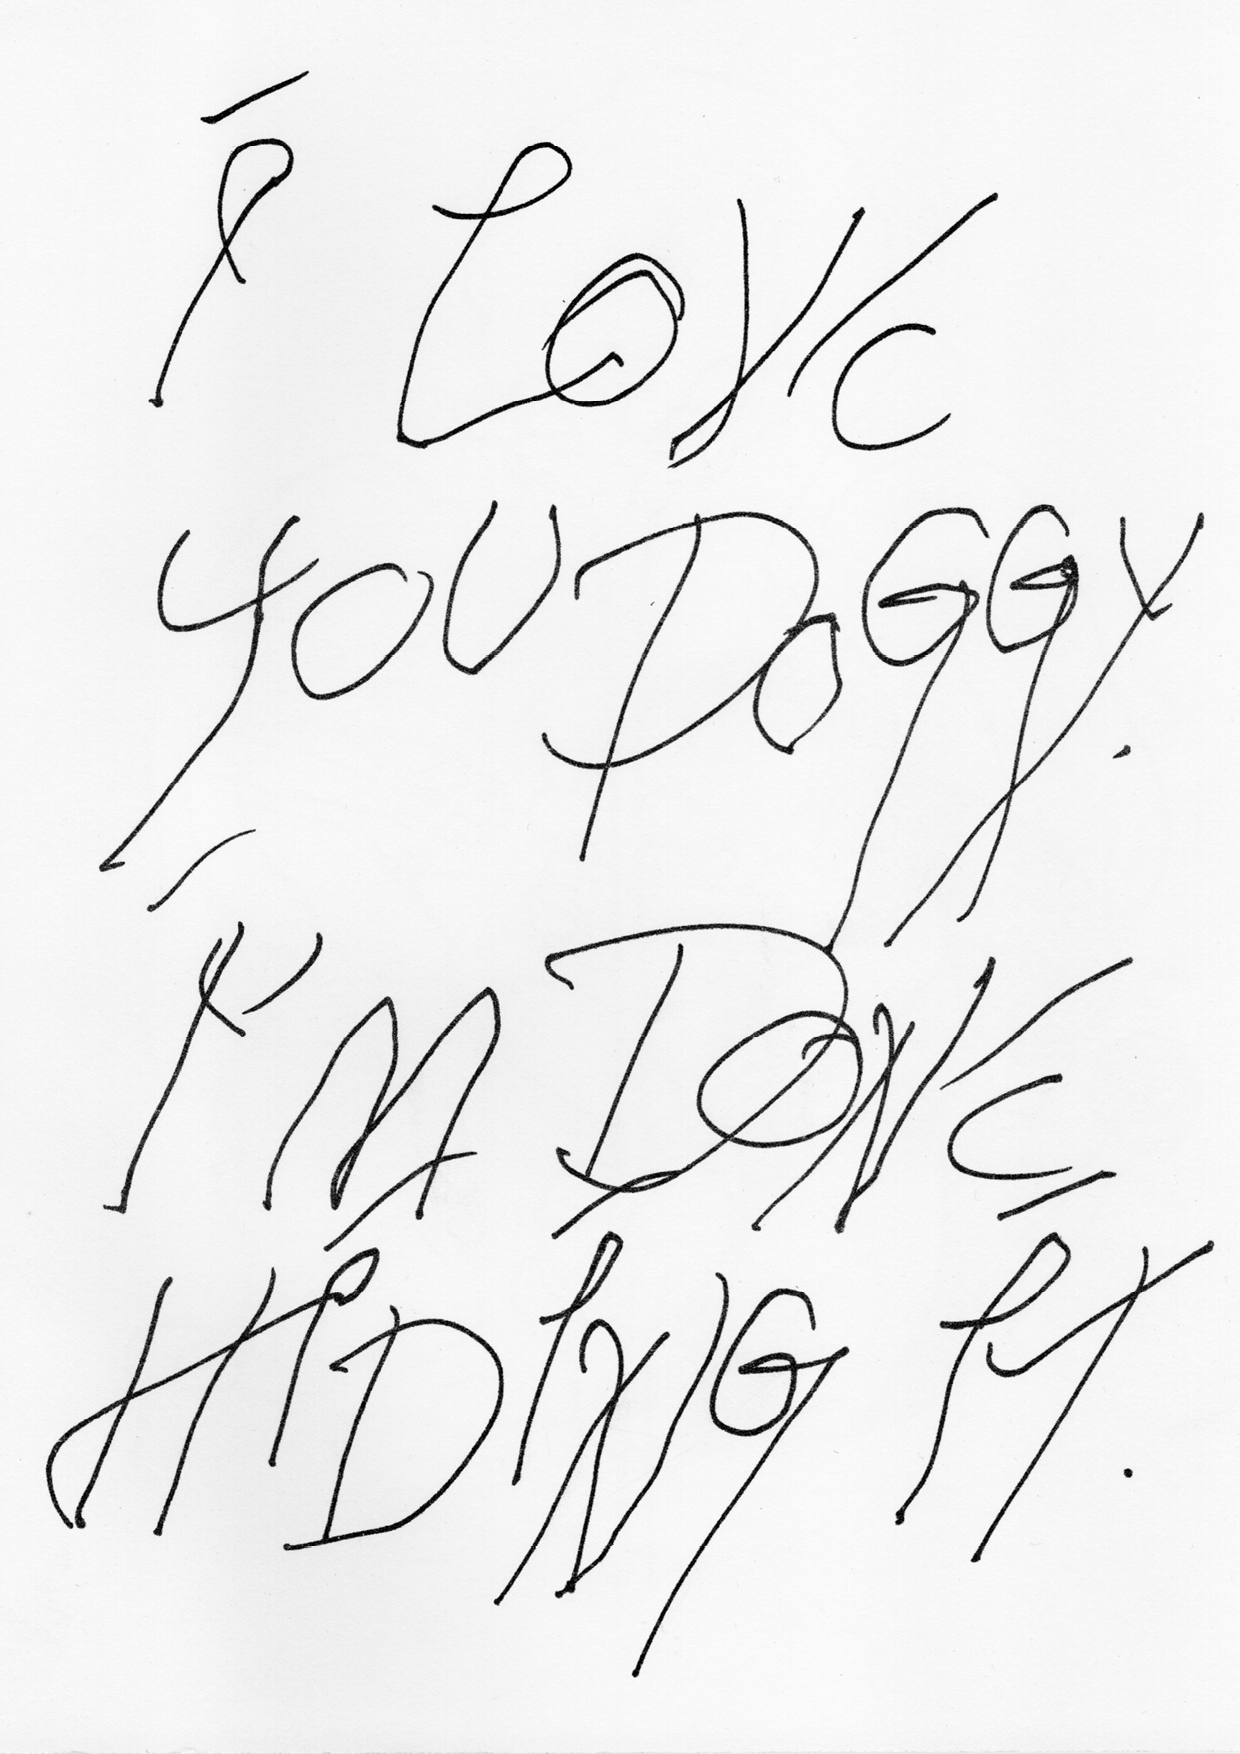 I LOVE
YOU DOGGY.
I'M DONE
HIDING IT.